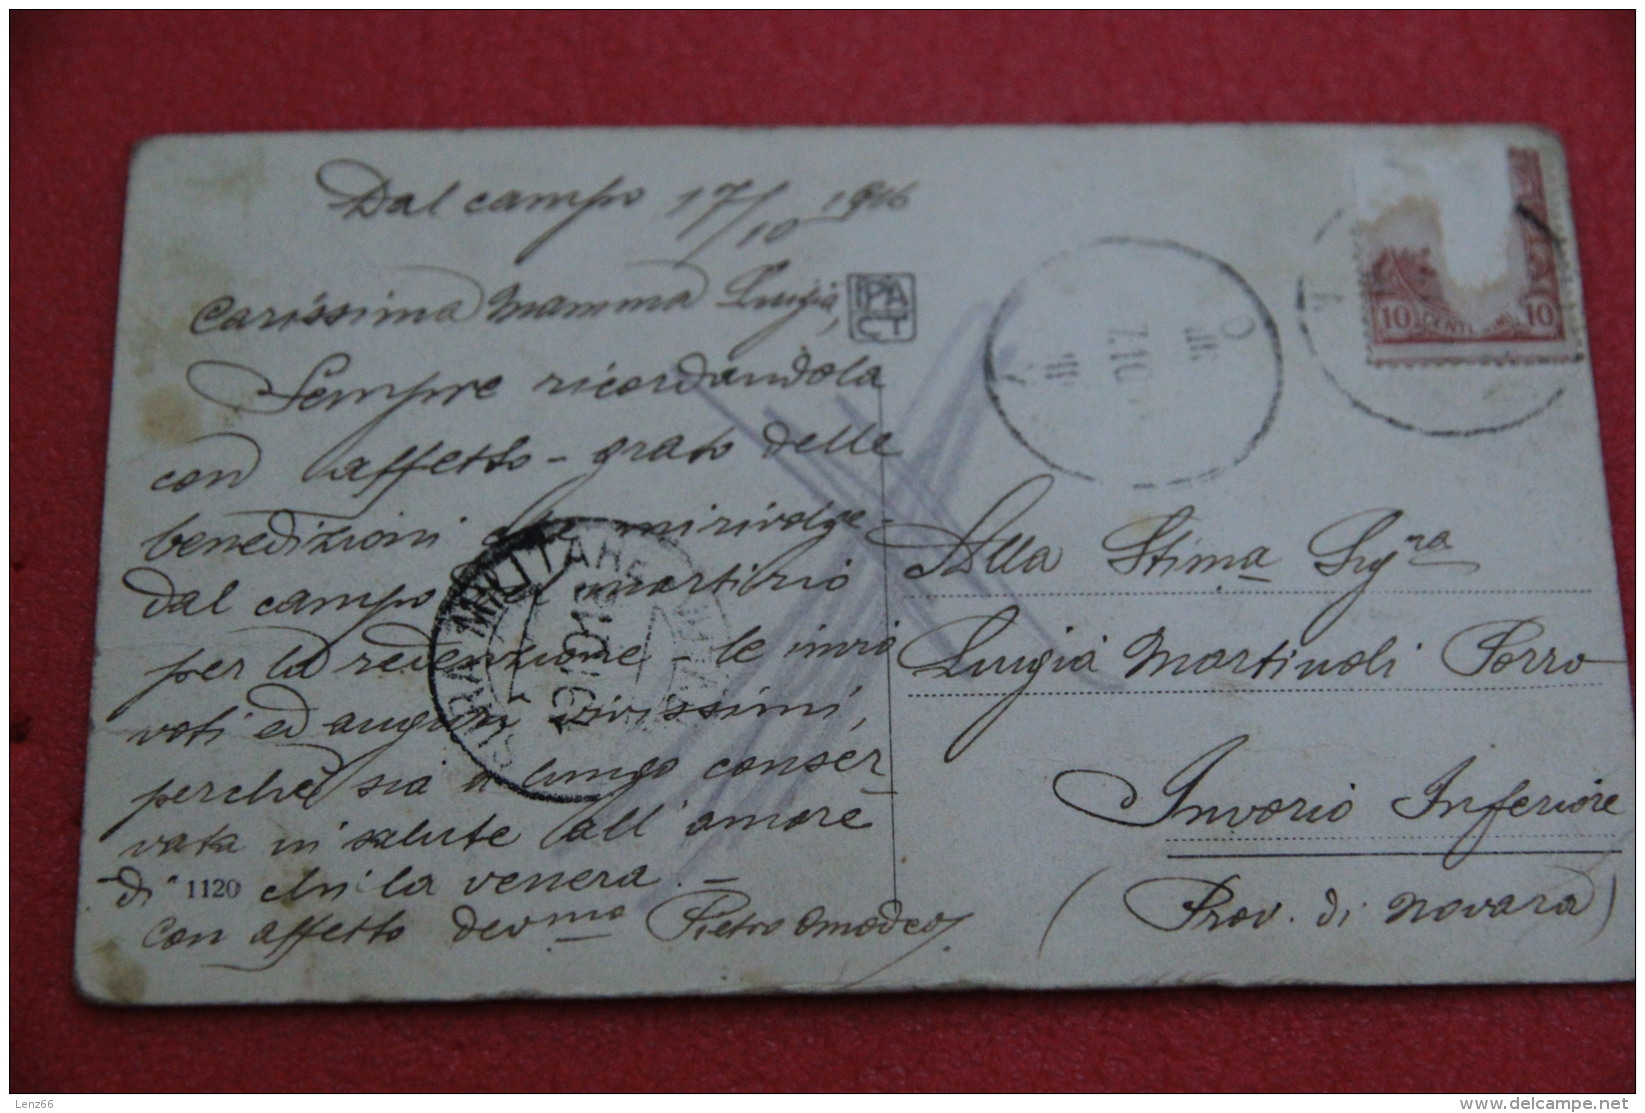 Dal campo 17/10 1916
Carissima Mamma Luigia,
Sempre ricordandola
con affetto-grato delle
benedizioni che mi rivolge-
dal campo del martirio
per la redenzione - le invio
voti ed auguri vivissimi,
perchè sia a lungo conser
vata in salute all'amore
di chi la venera. -
1120
con affetto devmo Pietro Omodeo
IPA
CT
MILITARE
19.10.16
7.10
10 CENTESIMI 10
Alla Stima Sigra
Luigia Martinoli Porro
Invorio Inferiore
(Prov. di Novara)
Lenz66
delcampe.net